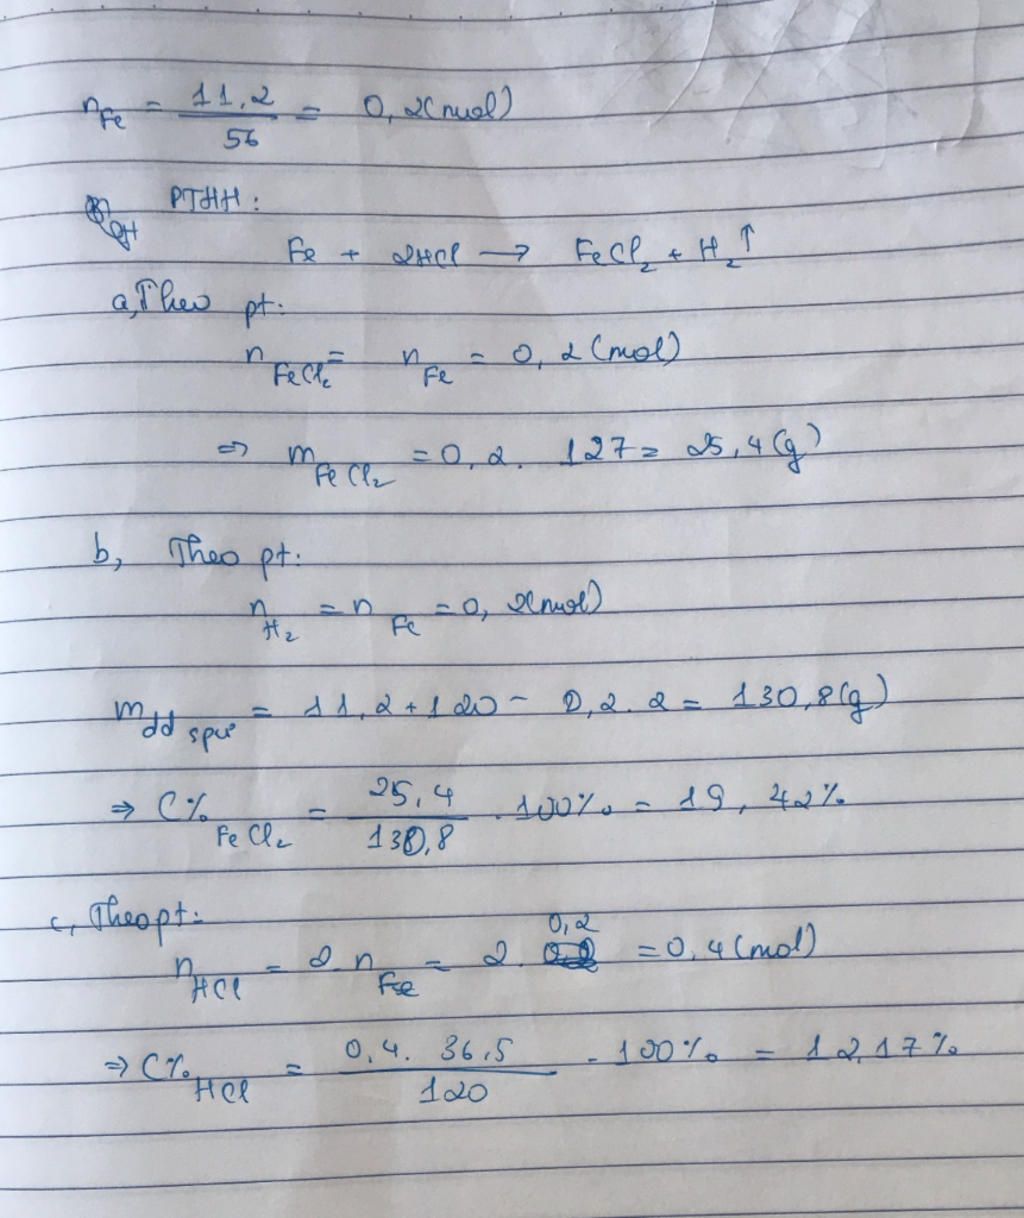 n_Fe = 11,2/56 = 0,2(mol)
PTHH:
Fe + 2HCl → FeCl₂ + H₂↑
a, Theo pt:
n_FeCl₂ = n_Fe = 0,2 (mol)
⇒ m_FeCl₂ = 0,2. 127 = 25,4 (g)
b, Theo pt:
n_H₂ = n_Fe = 0,2(mol)
m_dd spư = 11,2 + 120 - 0,2.2 = 130,8(g)
⇒ C%_FeCl₂ = 25,4/130,8 . 100% = 19,42%
c, Theo pt:
n_HCl = 2.n_Fe = 2. 0,2 = 0,4 (mol)
⇒ C%_HCl = 0,4. 36,5/120 . 100% = 12,17%